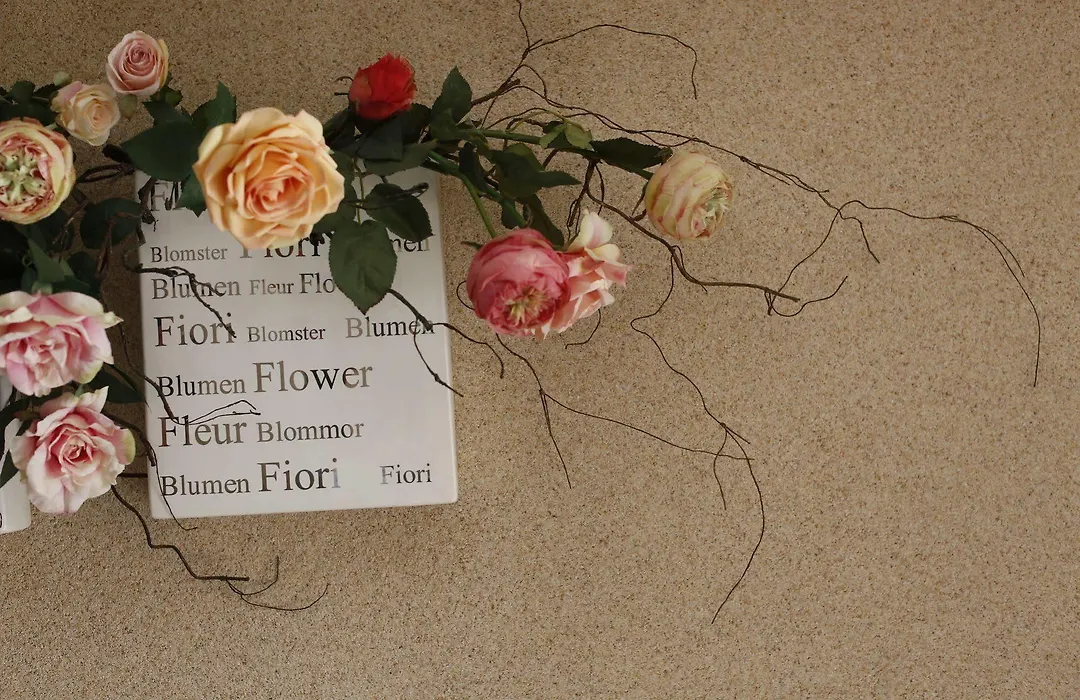 Blomster Fiori
Blumen Fleur
Fiori Blomster Blumen
Blumen Flower
Fleur Blommor
Blumen Fiori Fiori